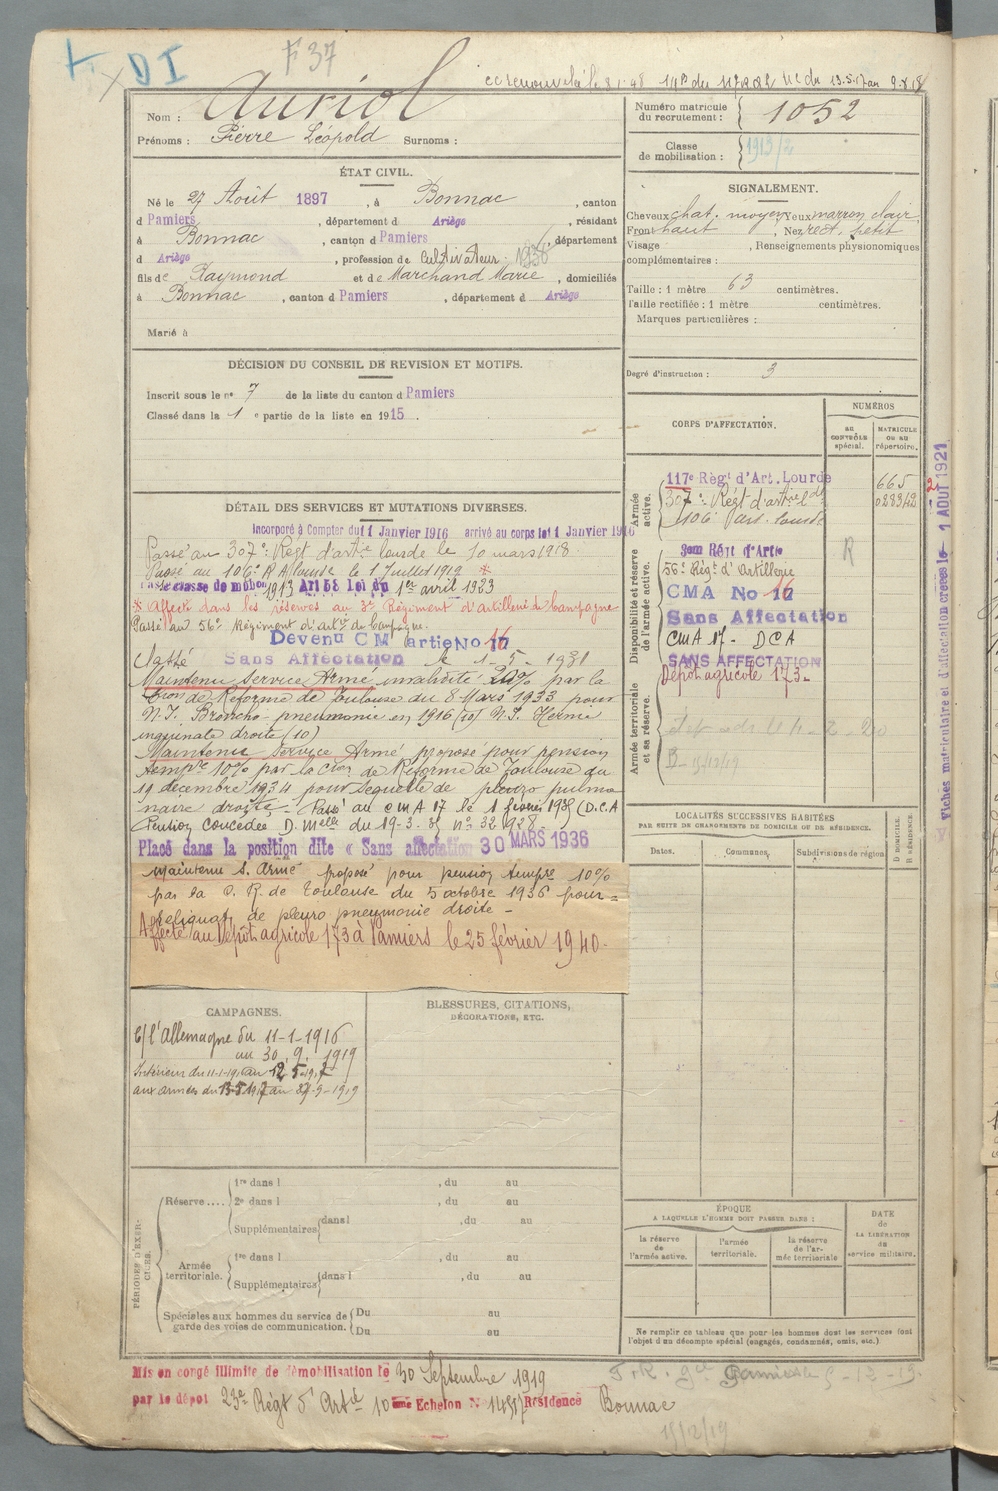 DI
F 37
Nom : Auriol
Prénoms : Pierre Léopold Surnoms :
Numéro matricule du recrutement : 1052
Classe de mobilisation : 1913/2
ÉTAT CIVIL.
Né le 27 Août 1897, à Bonnac, canton
d Pamiers, département d Ariège, résidant
à Bonnac, canton d Pamiers, département
d Ariège, profession de cultivateur
fils de Raymond et de Marchand Marie, domiciliés
à Bonnac, canton d Pamiers, département d Ariège
Marié à
SIGNALEMENT.
Cheveux chat. moyen Yeux marron clair
Front haut, Nez rect. petit
Visage, Renseignements physionomiques
complémentaires :
Taille : 1 mètre 63 centimètres.
Taille rectifiée : 1 mètre centimètres.
Marques particulières :
Degré d'instruction : 3
DÉCISION DU CONSEIL DE REVISION ET MOTIFS.
Inscrit sous le nº 7 de la liste du canton d Pamiers
Classé dans la 1 e partie de la liste en 1915.
CORPS D'AFFECTATION.
NUMÉROS
au contrôle spécial.
MATRICULE ou au répertoire.
Armée active.
117e Régt d'Art. Lourde 665
307e Régt d'artrie lde
106e Art. lourde
Disponibilité et réserve de l'armée active.
3em Régt d'Artie R
56e Régt d'Artillerie
CMA No 16
Sans Affectation
CMA 17 - DCA
SANS AFFECTATION
Armée territoriale et sa réserve.
Dépôt agricole 173-
Fiches matricule et d'affectation créées le 1 AOUT 1921
DÉTAIL DES SERVICES ET MUTATIONS DIVERSES.
Incorporé à Compter du 11 Janvier 1916 arrivé au corps le 11 Janvier 1916
Passé au 307e Régt d'artie lourde le 10 mars 1918
Passé au 106e R A lourde le 1 Juillet 1919 *
Passé classe de mobon 1913 Art 58 Loi du 1er avril 1923
* Affecté dans les réserves au 3e Régiment d'artillerie de Campagne
Passé au 56e Régiment d'artie de Campagne.
Devenu CM artie No 16
Classé Sans Affectation le 1-5-1931
Maintenu Service Armé invalidité 20% par la
Con de Réforme de Toulouse du 8 Mars 1933 pour
N.I. Broncho-pneumonie en 1916 (10) N.I. Hernie
inguinale droite (10)
Maintenu Service Armé proposé pour pension
tempre 10% par la Con de Réforme de Toulouse du
19 décembre 1934 pour séquelle de pleuro pulmo
naire droite - Passé au CMA 17 le 1 février 1935 (D.C.A
Pension concédée D. melle du 19-3-35 nº 32.928-
Placé dans la position dite « Sans affectation 30 MARS 1936
Maintenu S. Armé proposé pour pension tempre 10%
par la C. R. de Toulouse du 5 octobre 1936 pour =
reliquat de pleuro pneumonie droite -
Affecté au Dépôt agricole 173 à Pamiers le 25 février 1940-
LOCALITÉS SUCCESSIVES HABITÉES
PAR SUITE DE CHANGEMENTS DE DOMICILE OU DE RÉSIDENCE.
Dates.
Communes.
Subdivisions de région
D DOMICILE. R RÉSIDENCE.
CAMPAGNES.
C/ l'Allemagne du 11-1-1916
au 30.9.1919
Intérieur du 11-1-16 au 12.5.1917
aux armées du 13-5-1917 au 29-9-1919
BLESSURES, CITATIONS,
DÉCORATIONS, ETC.
PÉRIODES D'EXERCICES.
Réserve....
1re dans l , du au
2e dans l , du au
Supplémentaires dans l , du au
Armée territoriale.
1re dans l , du au
Supplémentaires dans l , du au
Spéciales aux hommes du service de garde des voies de communication.
Du au
Du au
ÉPOQUE
A LAQUELLE L'HOMME DOIT PASSER DANS :
la réserve de l'armée active.
l'armée territoriale.
la réserve de l'armée territoriale
DATE de LA LIBÉRATION du service militaire.
Ne remplir ce tableau que pour les hommes dont les services font
l'objet d'un décompte spécial (engagés, condamnés, omis, etc.)
Mis en congé illimité de démobilisation le 30 Septembre 1919
par le dépôt 23e Régt d'Artie 10ème Echelon Résidence Bonnac
15/12/19